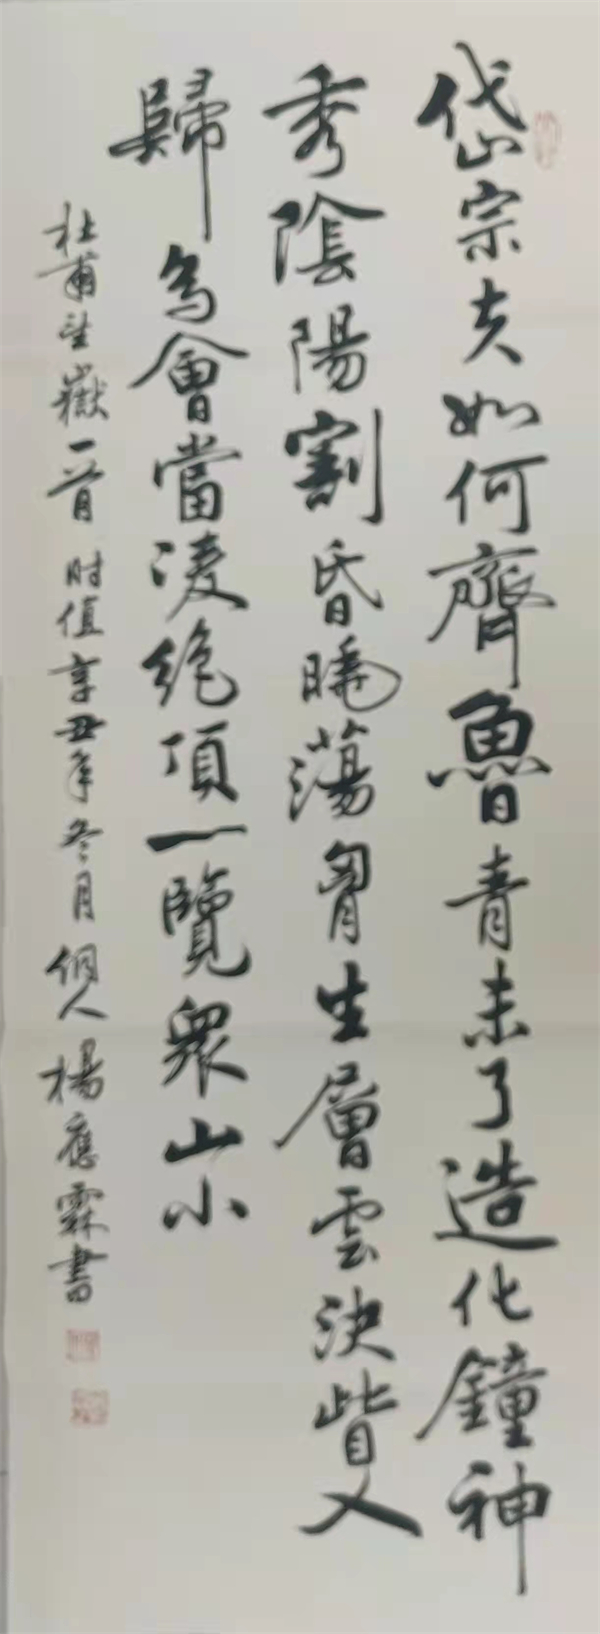 岱宗夫如何齊魯青未了造化鐘神
秀陰陽割昏曉蕩胷生層雲決眥入
歸鳥會當凌絕頂一覽眾山小
杜甫望嶽一首 时值辛丑年冬月 楊應霖書